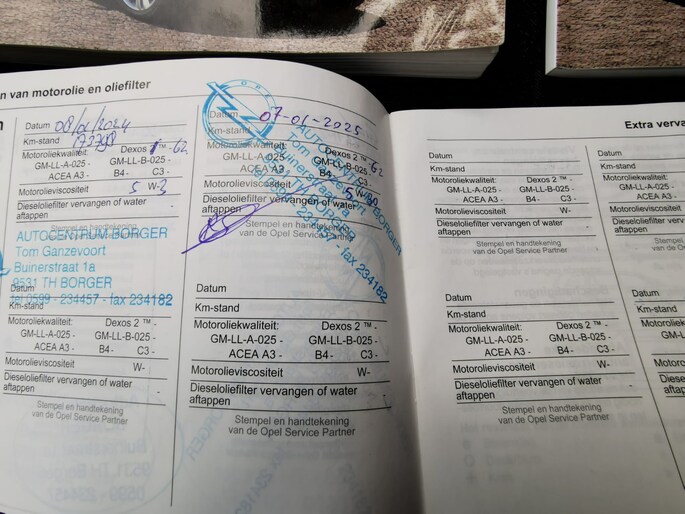 en van motorolie en oliefilter
Datum 08/01/2024
Km-stand
Motoroliekwaliteit: Dexos 1™- G2
GM-LL-A-025 - GM-LL-B-025 -
ACEA A3 - B4 - C3 -
Motorolieviscositeit 5 W-3
Dieseloliefilter vervangen of water
aftappen -
AUTOCENTRUM BORGER
Tom Ganzevoort
Buinerstraat 1a
9531 TH BORGER
tel 0599 - 234457 - fax 234182
Km-stand
Motoroliekwaliteit: Dexos 2 ™ -
GM-LL-A-025 - GM-LL-B-025 -
ACEA A3 - B4 - C3 -
Motorolieviscositeit W-
Dieseloliefilter vervangen of water
aftappen -
Stempel en handtekening
van de Opel Service Partner
OPEL
Datum 07-01-2025
Km-stand
Motoroliekwaliteit: Dexos 2 ™ G2
GM-LL-A-025 - GM-LL-B-025
ACEA A3 - B4 - C3 -
Motorolieviscositeit 5 W-30
Dieseloliefilter vervangen of water
aftappen
Stempel en handtekening
van de Opel Service Partner
AUTOCENTRUM BORGER
Tom Ganzevoort
Buinerstraat 1a
234457 - fax 234182
Datum
Km-stand
Motoroliekwaliteit: Dexos 2 ™ -
GM-LL-A-025 - GM-LL-B-025 -
ACEA A3 - B4 - C3 -
Motorolieviscositeit W-
Dieseloliefilter vervangen of water
aftappen -
Stempel en handtekening
van de Opel Service Partner
Extra verva
Datum
Km-stand
Motoroliekwaliteit: Dexos 2 ™ -
GM-LL-A-025 - GM-LL-B-025 -
ACEA A3 - B4 - C3 -
Motorolieviscositeit W-
Dieseloliefilter vervangen of water
aftappen -
Stempel en handtekening
van de Opel Service Partner
Datum
Km-stand
Motoroliekwaliteit: Dexos 2 ™ -
GM-LL-A-025 - GM-LL-B-025 -
ACEA A3 - B4 - C3 -
Motorolieviscositeit W-
Dieseloliefilter vervangen of water
aftappen -
Stempel en handtekening
van de Opel Service Partner
Datum
Km-stand
Motoroliek
GM-LL
AC
Motorolievi
Dieselolief
aftappen
Datum
Km-sta
Motoroli
GM-L
Motoro
Diesel
aftapp